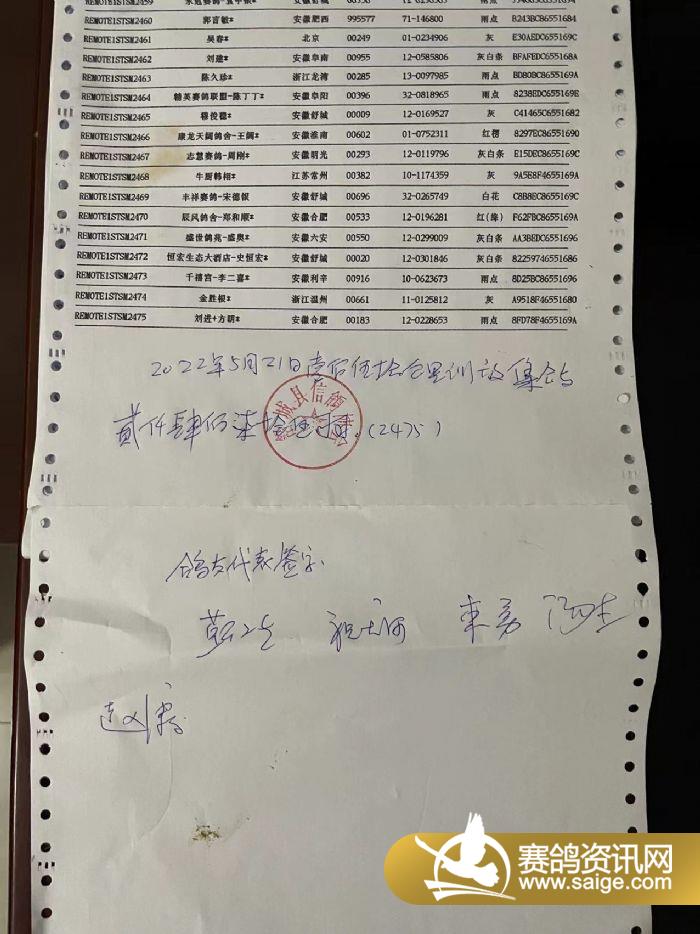 REMOTE1STSM2460 郭言敏* 安徽肥西 995577 71-146800 雨点 B243BC86551684
REMOTE1STSM2461 吴春* 北京 00249 01-0234906 灰 E30AEDC655169C
REMOTE1STSM2462 刘建* 安徽阜南 00955 12-0585806 灰白条 BFAFEDC655168A
REMOTE1STSM2463 陈久珍* 浙江龙湾 00285 13-0097985 雨点 BD80BC8655169A
REMOTE1STSM2464 精英赛鸽联盟-陈丁丁* 安徽阜阳 00396 32-0818965 雨点 8238EDC655169E
REMOTE1STSM2465 穆俊稳* 安徽舒城 00009 12-0169527 灰 C41465C6551682
REMOTE1STSM2466 康龙天阔鸽舍-王阔* 安徽淮南 00602 01-0752311 红楞 8297EC86551690
REMOTE1STSM2467 志慧赛鸽-周刚* 安徽明光 00293 12-0119796 灰白条 E15DEC8655169C
REMOTE1STSM2468 牛厨韩栩* 江苏常州 00382 10-1174359 灰 9A5E8F4655169A
REMOTE1STSM2469 丰祥赛鸽-宋德银 安徽舒城 00696 32-0265749 白花 C8B8EC8655169C
REMOTE1STSM2470 辰风鸽舍-郑和顺* 安徽合肥 00533 12-0196281 红(绛) F62FBC8655169A
REMOTE1STSM2471 盛世鸽苑-盛奥* 安徽六安 00550 12-0299009 灰白条 AA3BEDC6551696
REMOTE1STSM2472 恒宏生态大酒店-史恒宏* 安徽舒城 00020 12-0301846 灰白条 82259746551686
REMOTE1STSM2473 千禧宫-李二喜* 安徽利辛 00916 10-0623673 雨点 8D25BC86551696
REMOTE1STSM2474 金胜根* 浙江温州 00661 11-0125812 灰 A9518F46551680
REMOTE1STSM2475 刘进+方明* 安徽合肥 00183 12-0228653 雨点 8FD78F4655169A
2022年5月21日壹佰伍拾公里训放集鸽
贰仟肆佰柒拾伍羽.(2475)
城县信鸽
鸽友代表签字
赛鸽资讯网
www.saige.com